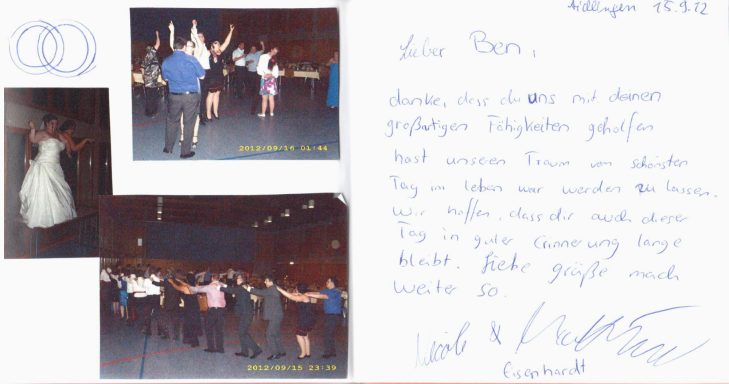 2012/09/16 01:44
2012/09/15 23:39
Aidlingen 15.9.12
Lieber Ben,
danke, dass du uns mit deinen
großartigen Fähigkeiten geholfen
hast unseren Traum vom schönsten
Tag im leben war werden zu lassen.
Wir hoffen, dass dir auch dieser
Tag in guter Erinnerung lange
bleibt. Liebe grüße mach
weiter so.
Nicole &
Eisenhardt